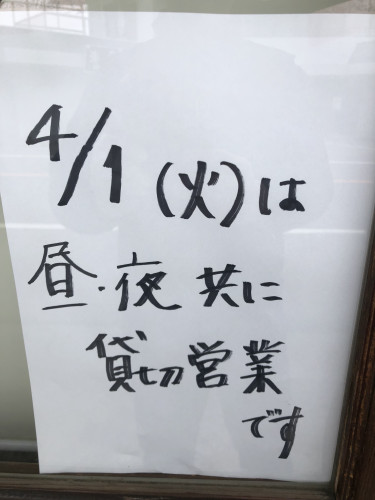 4/1(火)は
昼・夜共に
貸切営業
です